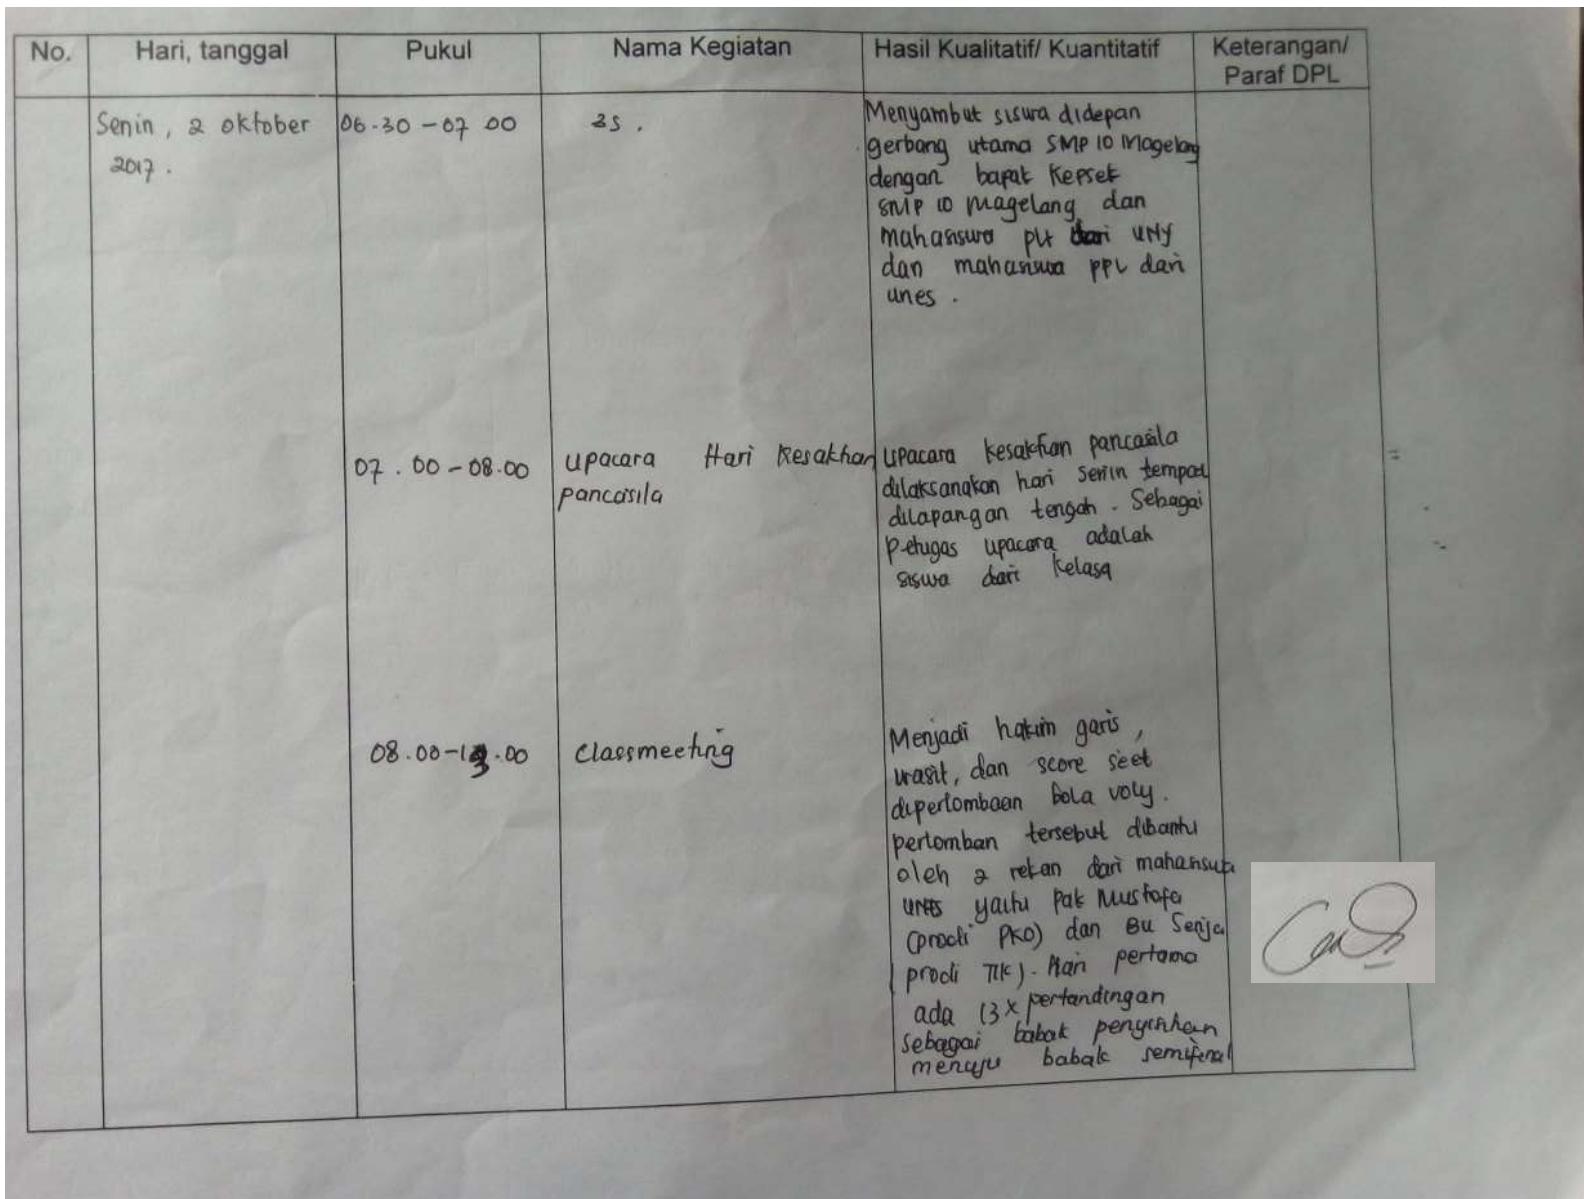 No.
Hari, tanggal
Pukul
Nama Kegiatan
Hasil Kualitatif/ Kuantitatif
Keterangan/
Paraf DPL
Senin, 2 oktober
2017.
06.30 - 07 00
3S.
Menyambut siswa didepan
gerbang utama SMP 10 Magelang
dengan bapak Kepsek
SMP 10 Magelang dan
mahasiswa plt dari UNY
dan mahasiswa PPL dari
unes.
07.00 - 08.00
upacara Hari Kesaktian
pancasila
upacara kesaktian pancasila
dilaksanakan hari senin tempat
dilapangan tengah. Sebagai
petugas upacara adalah
siswa dari kelas 9
08.00 - 13.00
Classmeeting
Menjadi hakim garis,
wasit, dan score seet
diperlombaan bola voly.
perlomban tersebut dibantu
oleh 2 rekan dari mahasiswa
UNES yaitu Pak Mustofa
(prodi PKO) dan Bu Senja
(prodi TIK). Hari pertama
ada 13x pertandingan
sebagai babak penyisihan
menuju babak semifinal